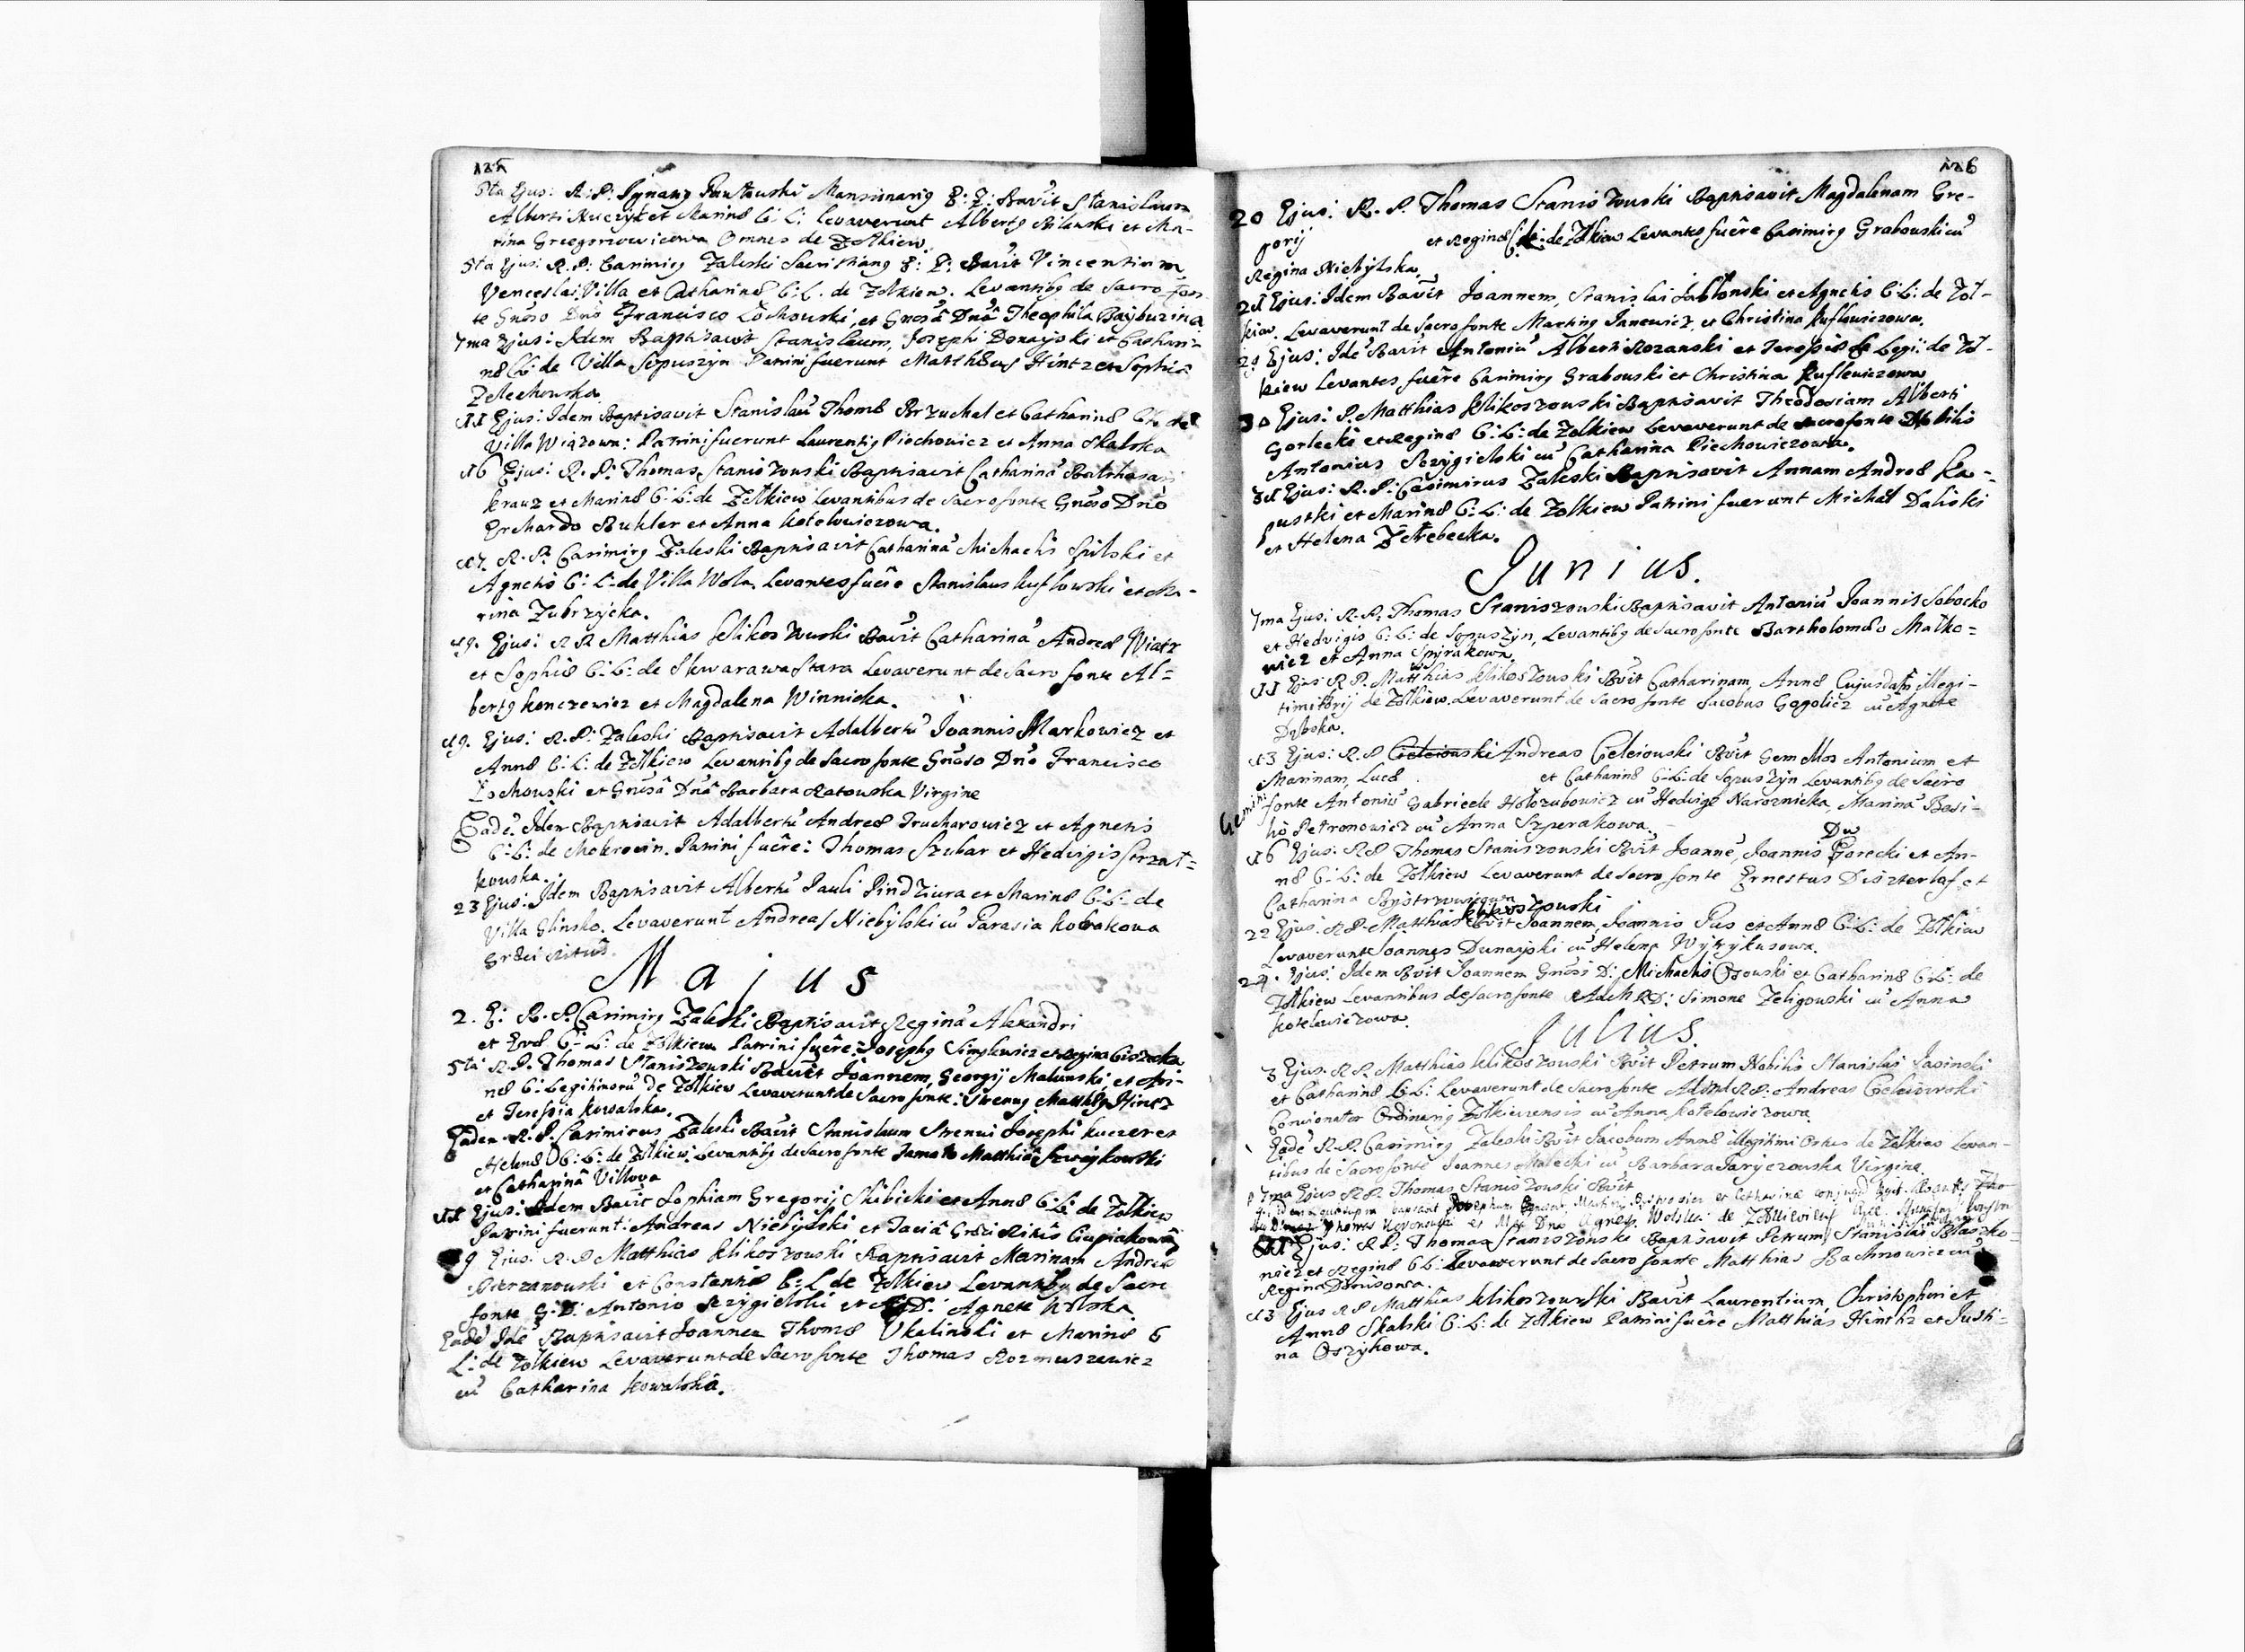 125
5ta Ejus: R: P: Ignatig Pawłowski Mansionarig E: Z: Bavit Stanislaum
Alberti Kuczyk et Marinæ C: L: levaverunt Albertg Bilanski et Ma-
rina Grzegorzowicowa Omnes de Zołkiew.
5ta Ejus: R: P: Casimirg Zaleski Sacristiang E: Z: Bavit Vincentium
Venceslai Villa et Catharinæ C: L: de Zołkiew. Levantibg de Sacro fon
te Gnoso Dno Francisco Łochowski, et Gnosâ Dnâ Theophila Bayburzina
7ma Ejus: Idem Baptisavit Stanislaum, Josephi Donayski et Cathari-
næ C: L: de Villa Sopuszyn Patrini fuerunt Matthæus Hintz et Sophia
Zelechowska
11 Ejus: Idem Baptisavit Stanislau Thomæ Brzuchal et Catharinæ C: L: de
Villa Wiązowa: Patrini fuerunt Laurentig Piochowicz et Anna Skalska
16 Ejus: R: P: Thomas Staniszowski Baptisavit Catharina Balthasari
Krauz et Marinæ C: L: de Zołkiew levantibus de Sacro fonte Gnoso Dno
Erhardo Buhler et Anna Kotelowiczowa.
17. R. P. Casimirg Zaleski Baptisavit Catharina Michaelis Spilski et
Agnetis C: L: de Villa Wola. Levantes fuêre Stanislaus Kuflowski et Ma-
rina Zubrzycka.
19. Ejus: R P Matthias Klikoszowski Bavit Catharina Andreæ Wiatr
et Sophiæ C: L: de Skwarawa Stara Levaverunt de Sacro fonte Al=
bertg Konczewicz et Magdalena Winnicka.
19. Ejus: R. P: Zaleski Baptisavit Adalbertu Joannis Markowicz et
Annæ C: L: de Zołkiew Levantibg de Sacro fonte Gnoso Dno Francisco
Łochowski et Gnosâ Dnâ Barbara Ratowska Virgine
Eade Idem Baptisavit Adalbertu Andreæ Trucharowicz et Agnetis
C: L: de Mokrocin. Patrini fuêre: Thomas Szubar et Hedvigis Strzał=
kowska.
23 Ejus: Idem Baptisavit Albertu Pauli Pindziura et Marinæ C: L: de
Villa Glinsko. Levaverunt Andreas Niebylski cu Parasia Kobakowa
Græci Ritus.
Majus
2. E: R. P. Casimirg Zaleski Baptisavit Regina Alexandri
et Evæ C: L: de Zołkiew Patrini fuêre: Josephg Simplewicz et Regina
5ta R. P. Thomas Staniszowski Bavit Joannem, Georgij Malunski, et Mari-
næ C: Legitimoru de Zołkiew Levaverunt de Sacro fonte: Strenug Matthæg Hintz
et Teressia Kowalska.
Eadem R. P. Casimirus Zaleski Bavit Stanislaum Strenui Josephi Kuczer et
Helenæ C: L: de Zołkiew Levantibg de Sacro fonte Famato Matthia Szczykowski
et Catharinâ Villowa
11 Ejus: Idem Bavit Sophiam Gregorij Skibicki et Annæ C: L: de Zołkiew
Patrini fuerunt: Andreas Niebylski et Taciâ Græci Ritûs Ciupiakowa
9 Ejus: R. P Matthias Klikoszowski Baptisavit Marinam Andreæ
Pierzanowski et Constantiæ C: L de Zołkiew Levantibg de Sacro
fonte G: D: Antonio Strzygielski et G: D: Agnete Wolska
Eade Ide Baptisavit Joannem Thomæ Ukalinski et Marinæ C
L: de Zołkiew Levaverunt de Sacro fonte Thomas Rozmuszewicz
cu Catharina Kowalska.
126
20 Ejus: R. P. Thomas Staniszowski Baptisavit Magdalenam Gre-
gorij et Reginæ C: L: de Zołkiew Levantes fuêre Casimirg Grabowski cu
Regina Niebylska
21 Ejus: Idem Bavit Joannem, Stanislai Jabłonski et Agnetis C: L: de Zoł-
kiew. Levaverunt de Sacro fonte Marting Janewicz, et Christina Kuflewiczowa.
29 Ejus: Ide Bavit Antoniu Alberti Rozanski et Teresiæ C: Legi: de Zoł-
kiew Levantes fuêre Casimirg Grabowski et Christina Kuflewiczowa
30 Ejus: P. Matthias Klikoszowski Baptisavit Theodosiam Alberti
Gorlecki et Reginæ C: L: de Zołkiew Levaverunt de Sacro fonte Nobilis
Antonius Strzygielski cu Catharina Piechowiczowa.
31 Ejus: R. P: Casimirus Zaleski Baptisavit Annam Andreæ Ka=
pustki et Marinæ C: L: de Zołkiew Patrini fuerunt Michał Daliski
et Helena Zełrebecka.
Junius.
7ma Ejus: R. P. Thomas Staniszowski Baptisavit Antoniu Joannis Sobocko
et Hedvigis C: L: de Sopuszyn, Levantibg de Sacro fonte Bartholomæo Małko=
wicz et Anna Spyrakowa
11 Ejus R P. Matthias Klikoszowski Bvit Catharinam Annæ Cujusdam illegi-
timi thorij de Zołkiew. Levaverunt de Sacro fonte Jacobus Gogolicz cu Agnete
Dębska.
13 Ejus: R. P Celeiowski Andreas Celeiowski Bvit Gemellos Antonium et
Marinam, Lucæ et Catharinæ C: L: de Sopuszyn Levantibg de Sacro
Gemini fonte Antoniu Gabriele Hołozubowicz cu Hedvige Naroznicka, Marina Basi-
lio Petronowicz cu Anna Szperakowa.
16 Ejus: R P Thomas Staniszowski Bvit Joanne, Joannis Gorecki et An-
næ C: L: de Zołkiew Levaverunt de Sacro fonte Ernestus Diszterlaf et
Catharina
22 Ejus: R P. Matthias Klikoszowski Bvit Joannem, Joannis Pus et Annæ C: L: de Zołkiew
Levaverunt Joannes Dunayski cu Helena Wytrykusowa.
24. Ejus: Idem Bvit Joannem Gnosi D: Michaelis Ozowski et Catharinæ C: L: de
Zołkiew Levantibus de Sacro fonte Adm R D: Simone Zeligowski cu Anna
Kotelewiczowa.
Julius.
3 Ejus. R. P. Matthias Klikoszowski Bvit Petrum Nobilis Stanislai Jasinski
et Catharinæ C: L: Levaverunt de Sacro fonte Adm R P: Andreas Celeiowski
Concionator Ordinarig Zołkiewensis cu Anna Kotelowiczowa
Eade R. P. Casimirg Zaleski Bvit Jacobum Annæ illegitimi ortus de Zołkiew Levan-
tibus de Sacro fonte Joannes Małecki cu Barbara Taryczowska Virgine.
7ma Ejus R P. Thomas Staniszowski Bvit
11 Ejus: R P: Thomas Staniszowski Baptisavit Petrum, Stanislai Błaszko-
wicz et Reginæ C L: Levaverunt de Sacro fonte Matthias Bachnowicz cu
Regina Denisowa.
13 Ejus R P Matthias Klikoszowski Bavit Laurentium Christophori et
Annæ Skalski C: L: de Zołkiew Patrini fuêre Matthias Hinthz et Justi-
na Oszykowa.